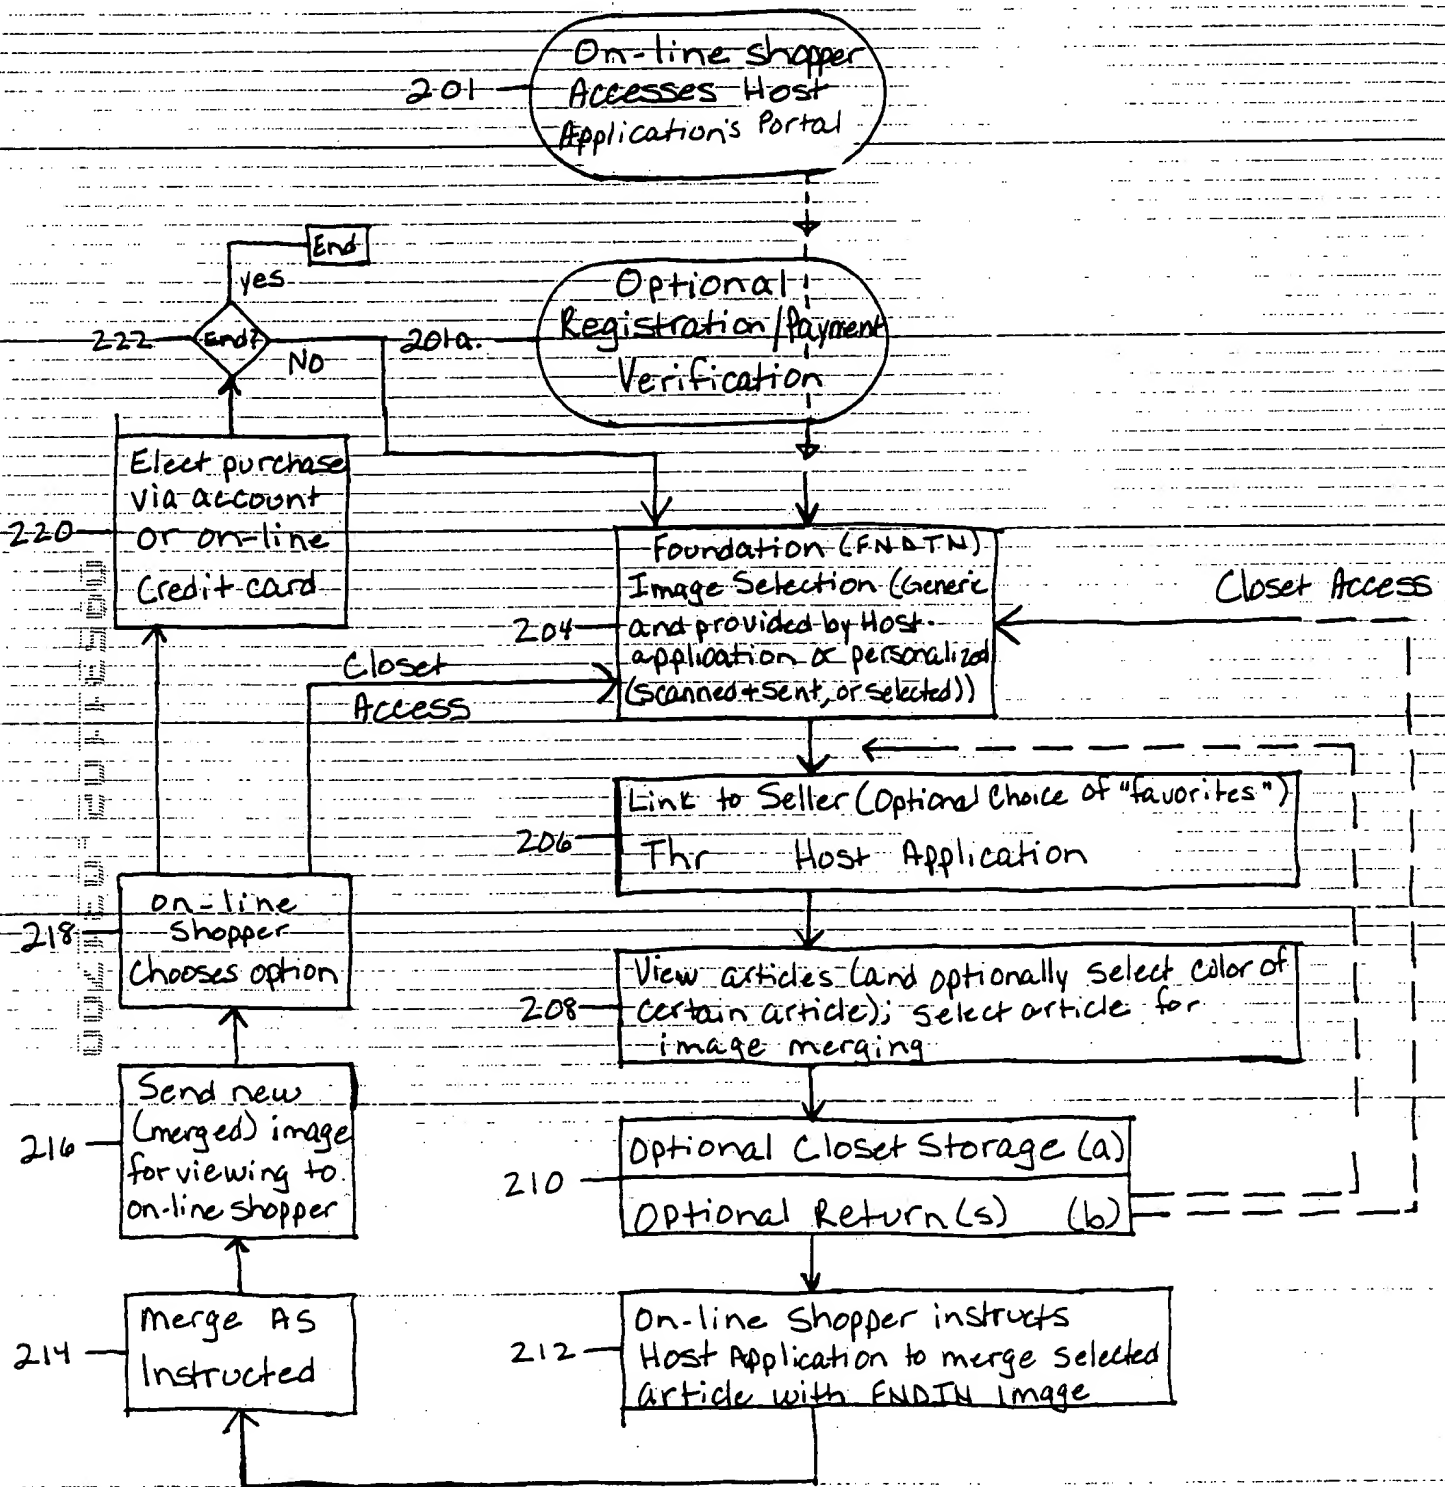 On-line shopper
201
Accesses Host
Application's Portal
End
yes
222
End?
No
201a.
Optional
Registration/Payment
Verification
Elect purchase
via account
220
or on-line
Credit card
Foundation (FNDTN)
Image Selection (Generic
204
and provided by Host
application or personalized
(scanned + sent, or selected))
Closet Access
Closet
Access
Link to Seller (Optional Choice of "favorites")
206
Thr Host Application
on-line
218
Shopper
Chooses option
View articles (and optionally select color of
208
certain article); select article for
image merging
Send new
216
(merged) image
for viewing to
on-line shopper
Optional Closet Storage (a)
210
Optional Return(s) (b)
Merge As
214
Instructed
On-line Shopper instructs
212
Host Application to merge selected
article with FNDTN Image